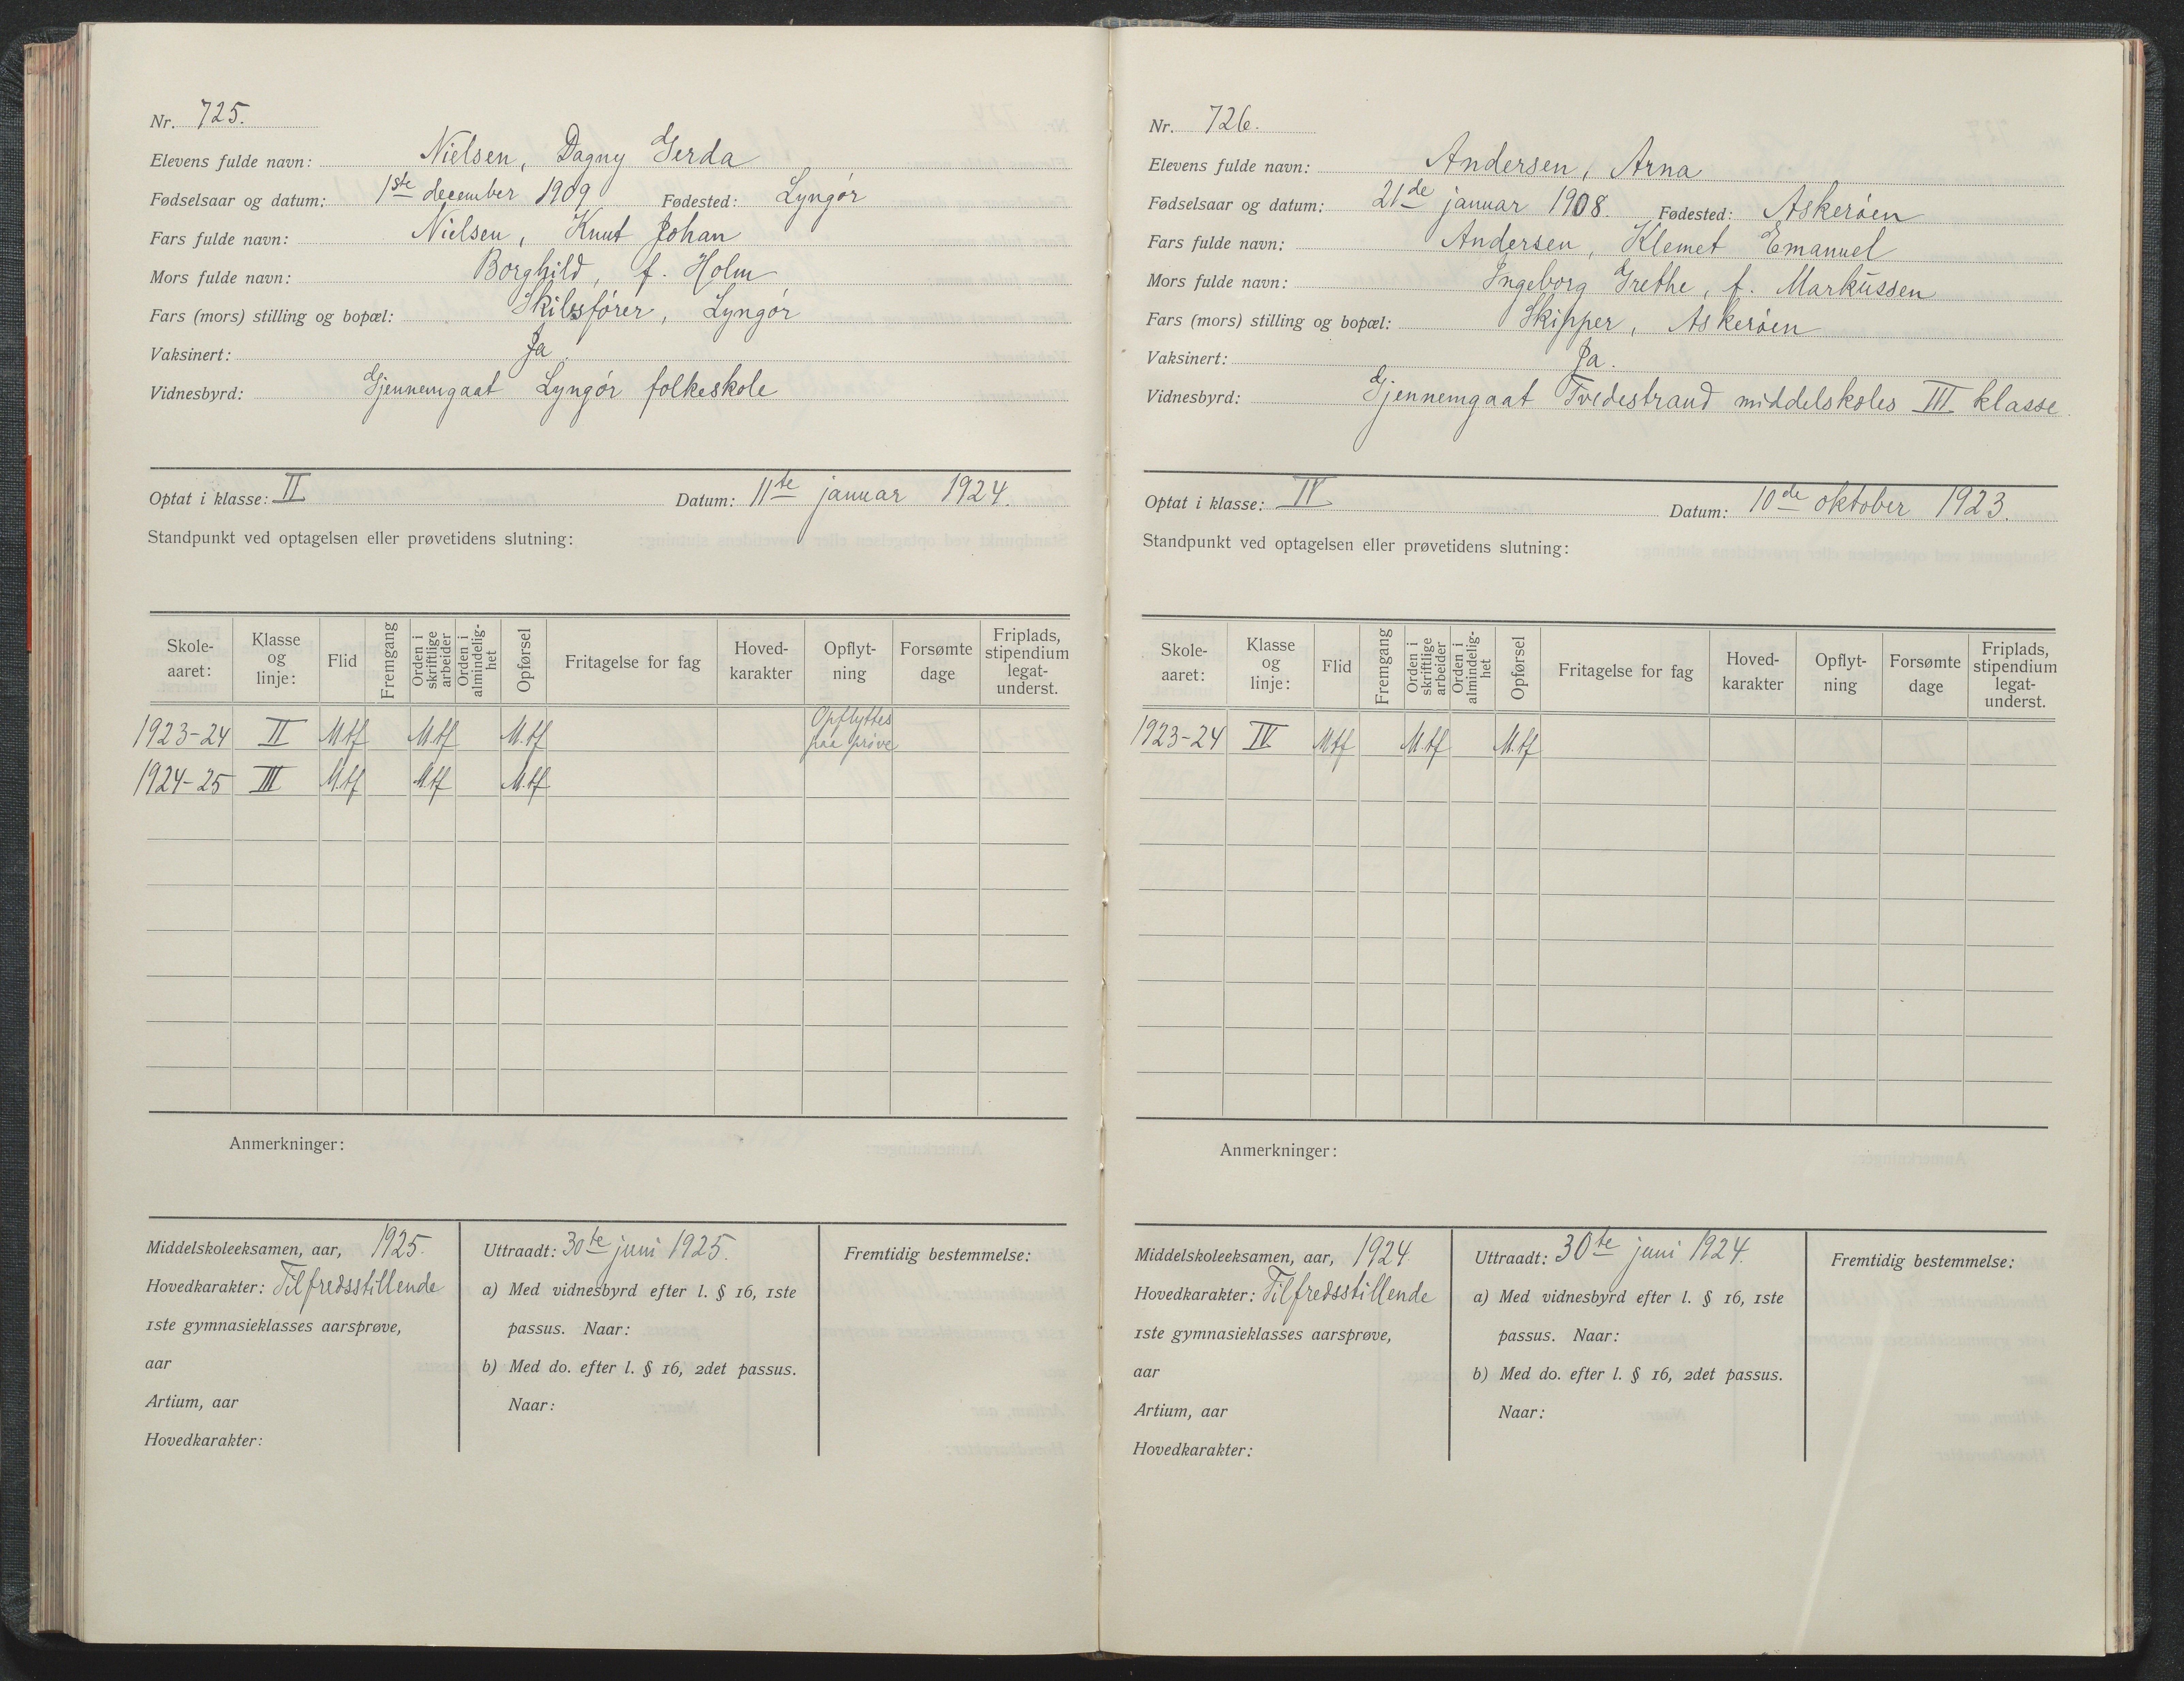 Nr. 725.
Elevens fulde navn: Nielsen, Dagny Gerda
Fødselsaar og datum: 1ste december 1909 Fødested: Lyngør
Fars fulde navn: Nielsen, Knut Johan
Mors fulde navn: Borghild, f. Holm
Fars (mors) stilling og bopæl: Skibsfører, Lyngør
Vaksinert: Ja.
Vidnesbyrd: Gjennemgaat Lyngør folkeskole
Optat i klasse: II Datum: 11te januar 1924.
Standpunkt ved optagelsen eller prøvetidens slutning:
Skole-aaret: Klasse og linje: Flid Fremgang Orden i skriftlige arbeider Orden i almindelig-het Opførsel Fritagelse for fag Hoved-karakter Opflyt-ning Forsømte dage Friplads, stipendium legat-underst.
1923-24 II M.tf M.tf M.tf Opflyttes paa prøve
1924-25 III M.tf M.tf M.tf
Anmerkninger:
Middelskoleeksamen, aar, 1925.
Hovedkarakter: Tilfredsstillende
1ste gymnasieklasses aarsprøve,
aar
Artium, aar
Hovedkarakter:
Uttraadt: 30te juni 1925.
a) Med vidnesbyrd efter l. § 16, 1ste
passus. Naar:
b) Med do. efter l. § 16, 2det passus.
Naar:
Fremtidig bestemmelse:
Nr. 726.
Elevens fulde navn: Andersen, Arna
Fødselsaar og datum: 21de januar 1908. Fødested: Askerøen
Fars fulde navn: Andersen, Klemet Emanuel
Mors fulde navn: Ingeborg Grethe, f. Markussen
Fars (mors) stilling og bopæl: Skipper, Askerøen
Vaksinert: Ja.
Vidnesbyrd: Gjennemgaat Tvedestrand middelskoles III klasse.
Optat i klasse: IV Datum: 10de oktober 1923.
Standpunkt ved optagelsen eller prøvetidens slutning:
Skole-aaret: Klasse og linje: Flid Fremgang Orden i skriftlige arbeider Orden i almindelig-het Opførsel Fritagelse for fag Hoved-karakter Opflyt-ning Forsømte dage Friplads, stipendium legat-underst.
1923-24 IV Mtf M.tf M.tf
Anmerkninger:
Middelskoleeksamen, aar, 1924.
Hovedkarakter: Tilfredsstillende
1ste gymnasieklasses aarsprøve,
aar
Artium, aar
Hovedkarakter:
Uttraadt: 30te juni 1924.
a) Med vidnesbyrd efter l. § 16, 1ste
passus. Naar:
b) Med do. efter l. § 16, 2det passus.
Naar:
Fremtidig bestemmelse: